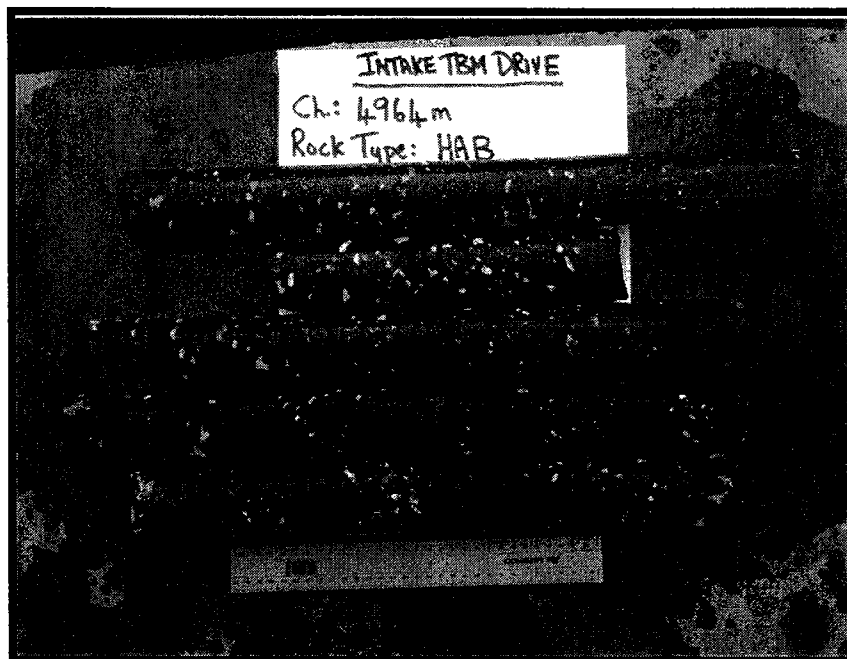 INTAKE TBM DRIVE
Ch.: 4964m
Rock Type: HAB